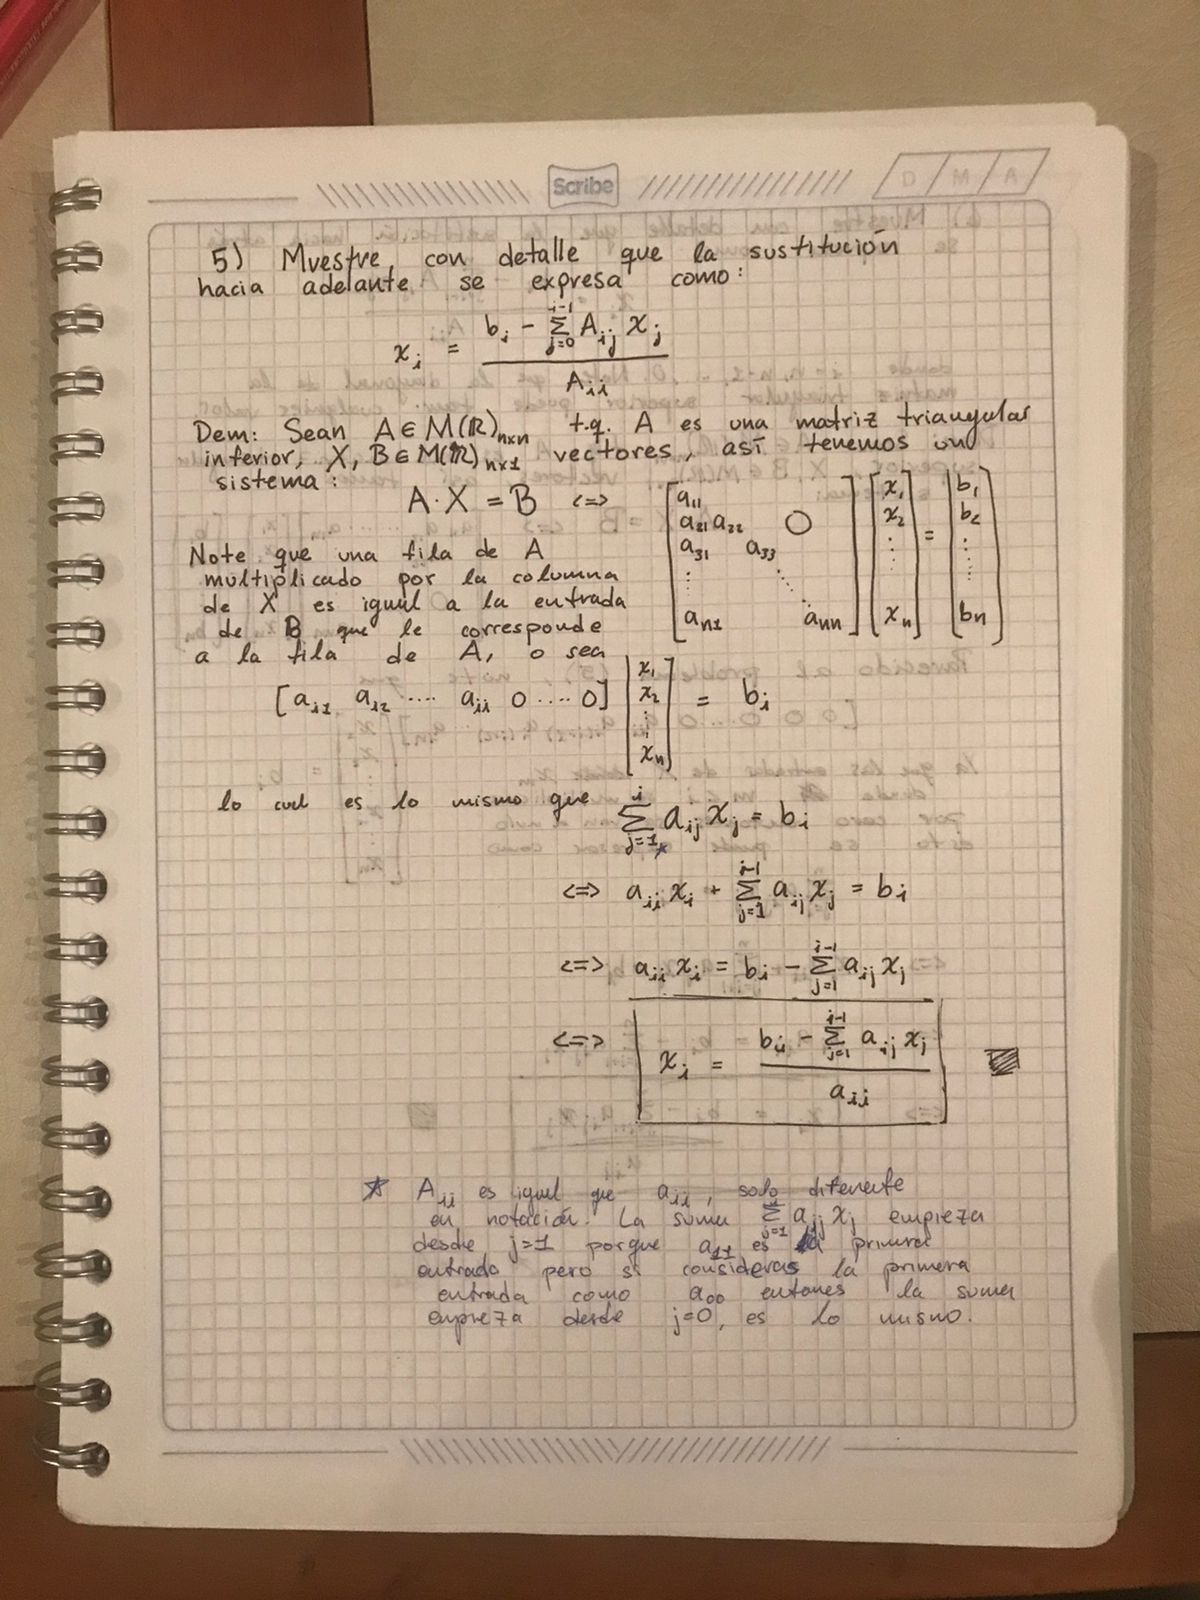 Scribe
D M A
5) Muestre con detalle que la sustitución
hacia adelante se expresa como:
x_i = (b_i - Σ_{j=0}^{i-1} A_{ij} x_j) / A_{ii}
Dem: Sean A ∈ M(ℝ)_{n×n} t.q. A es una matriz triangular
inferior, X, B ∈ M(ℝ)_{n×1} vectores, así tenemos un
sistema:
A · X = B <=> [a_{11} ; a_{21} a_{22} O ; a_{31} a_{33} ; ⋮ ⋱ ; a_{n1} a_{nn}] [x_1 ; x_2 ; ⋮ ; x_n] = [b_1 ; b_2 ; ⋮ ; b_n]
Note que una fila de A
multiplicado por la columna
de X es igual a la entrada
de B que le corresponde
a la fila de A, o sea
[a_{i1} a_{i2} .... a_{ii} 0 .... 0] [x_1 ; x_2 ; ⋮ ; x_n] = b_i
lo cual es lo mismo que Σ_{j=1}^{i} a_{ij} x_j = b_i
*
<=> a_{ii} x_i + Σ_{j=1}^{i-1} a_{ij} x_j = b_i
<=> a_{ii} x_i = b_i - Σ_{j=1}^{i-1} a_{ij} x_j
<=> x_i = (b_i - Σ_{j=1}^{i-1} a_{ij} x_j) / a_{ii}
* A_{ii} es igual que a_{ii}, solo diferente
en notación. La suma Σ_{j=1} a_{ij} x_j empieza
desde j=1 porque a_{11} es la primera
entrada pero si consideras la primera
entrada como a_{00} entonces la suma
empieza desde j=0, es lo mismo.